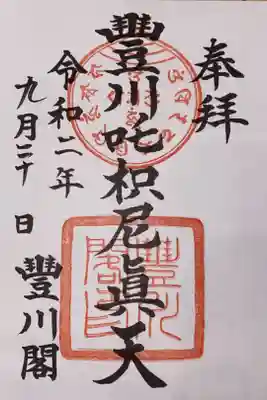 奉拝
豐川吒枳尼眞天
令和二年
九月二十日
豐川閣